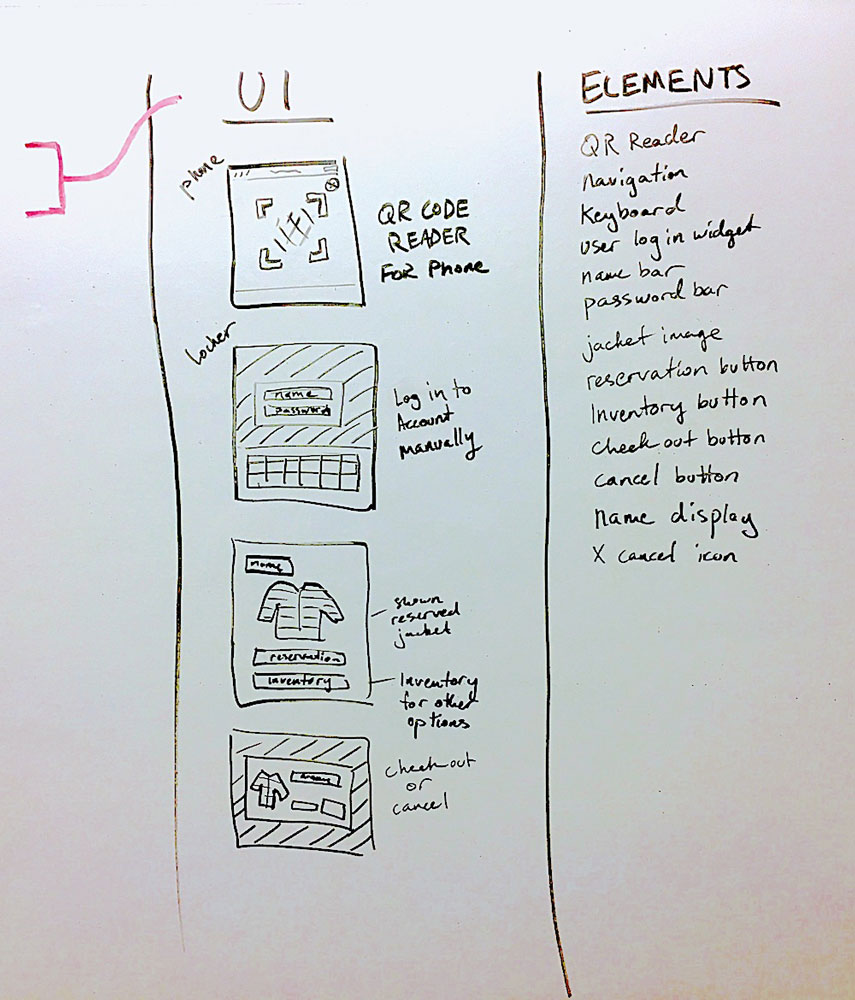 UI
phone
QR CODE
READER
FOR Phone
Locker
name
password
Log in to
Account
manually
name
shown
reserved
jacket
reservation
inventory
Inventory
for other
options
name
check out
or
cancel
ELEMENTS
QR Reader
navigation
Keyboard
user log in widget
name bar
password bar
jacket image
reservation button
Inventory button
check out button
cancel button
Name display
X cancel icon